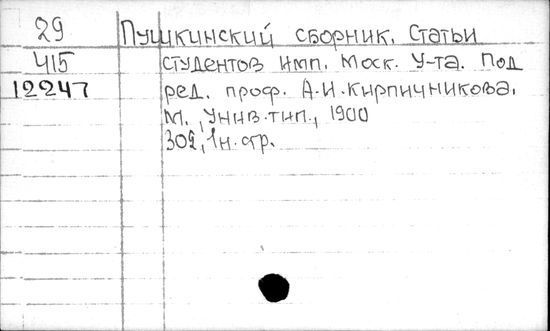 29 Пушкинский сборник. Статьи
415 студентов Имп. Моск. У-та. Под
12247 ред. проф. А.И.Кирпичникова.
М., Унив.тип., 1900
302, 1н.стр.